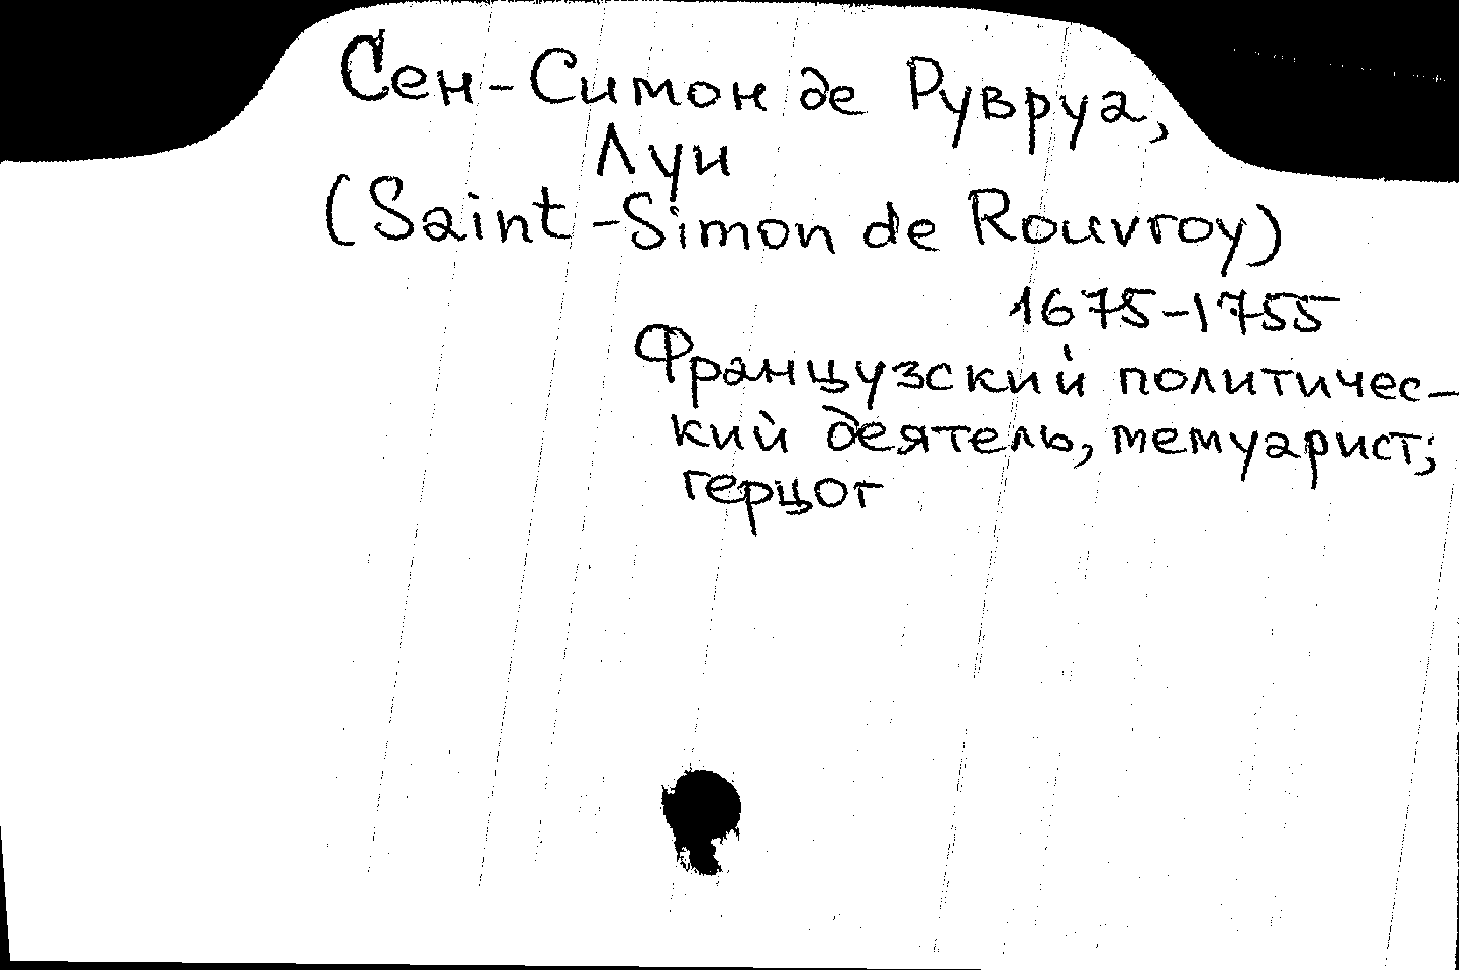 Сен-Симон де Рувруа,
Луи
(Saint-Simon de Rouvroy)
1675-1755
Французский политичес-
кий деятель, мемуарист;
герцог